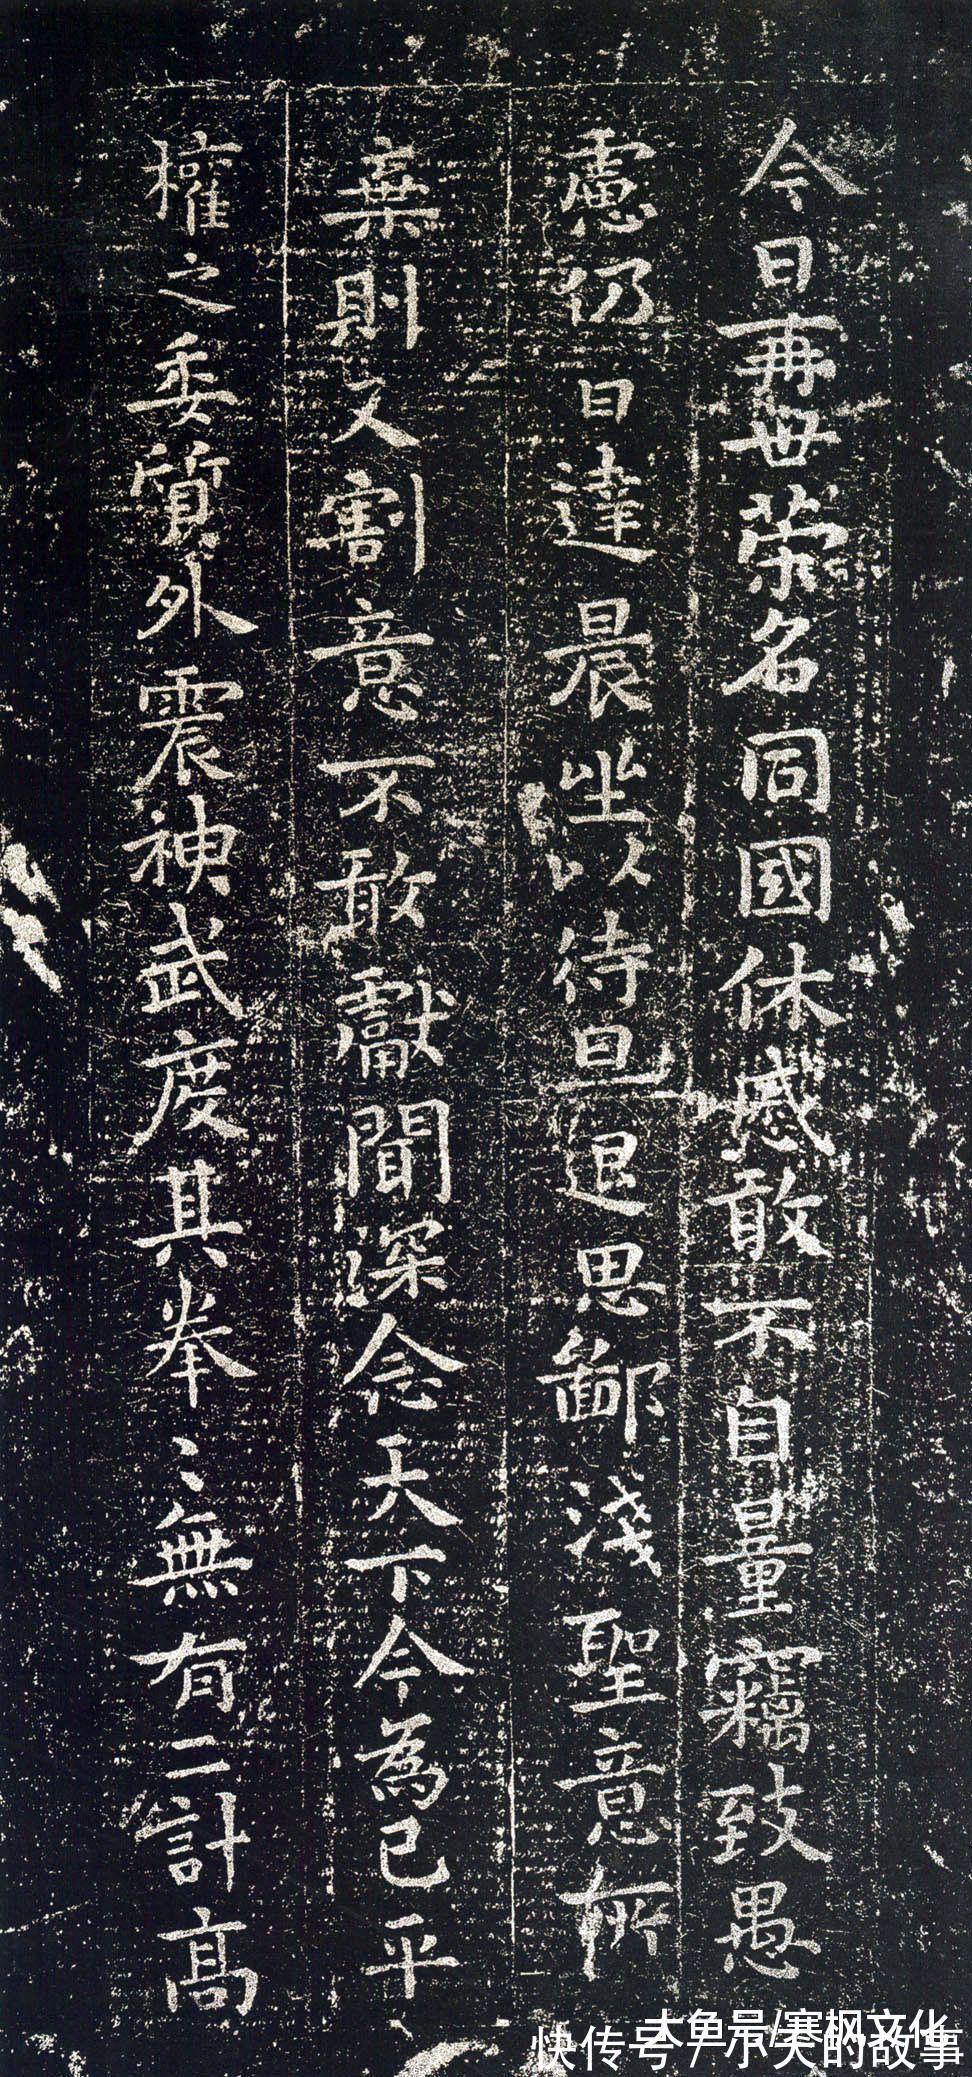 今日再世荣名同國休慼敢不自量竊致愚
慮仍日達晨坐以待旦退思鄙淺聖意所
棄則又割意不敢獻聞深念天下今為已平
權之委質外震神武度其拳〻無有二計高
大鱼号/寒枫文化
快传号/小天的故事